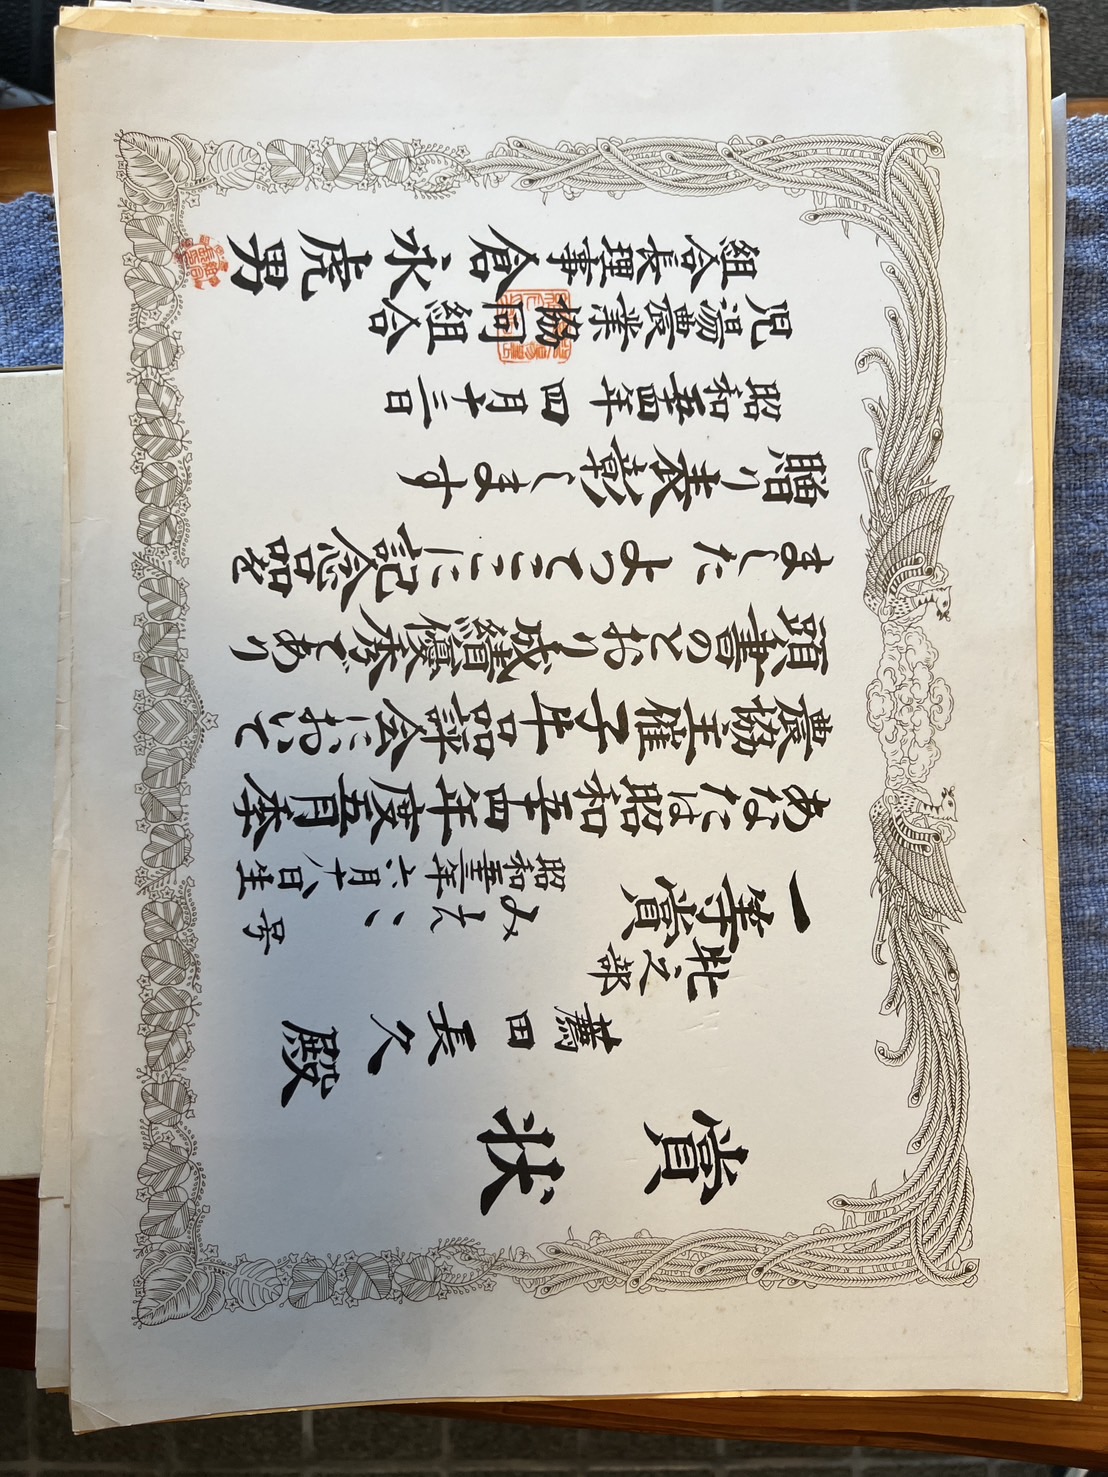 賞状
田長久殿
一等賞 牝之部
号
昭和五三年六月十八日生
あなたは昭和五四年度五月本
農協主催子牛品評会において
頭書のとおり成績優秀であり
ました よってここに記念品を
贈り表彰します
昭和五四年四月十三日
児湯農業協同組合
組合長理事 倉永虎男